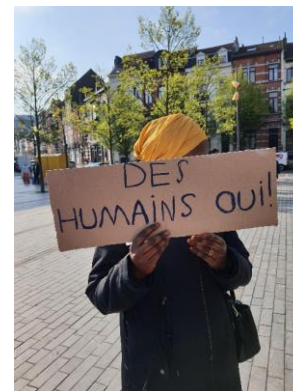 DES
HUMAINS OUI!